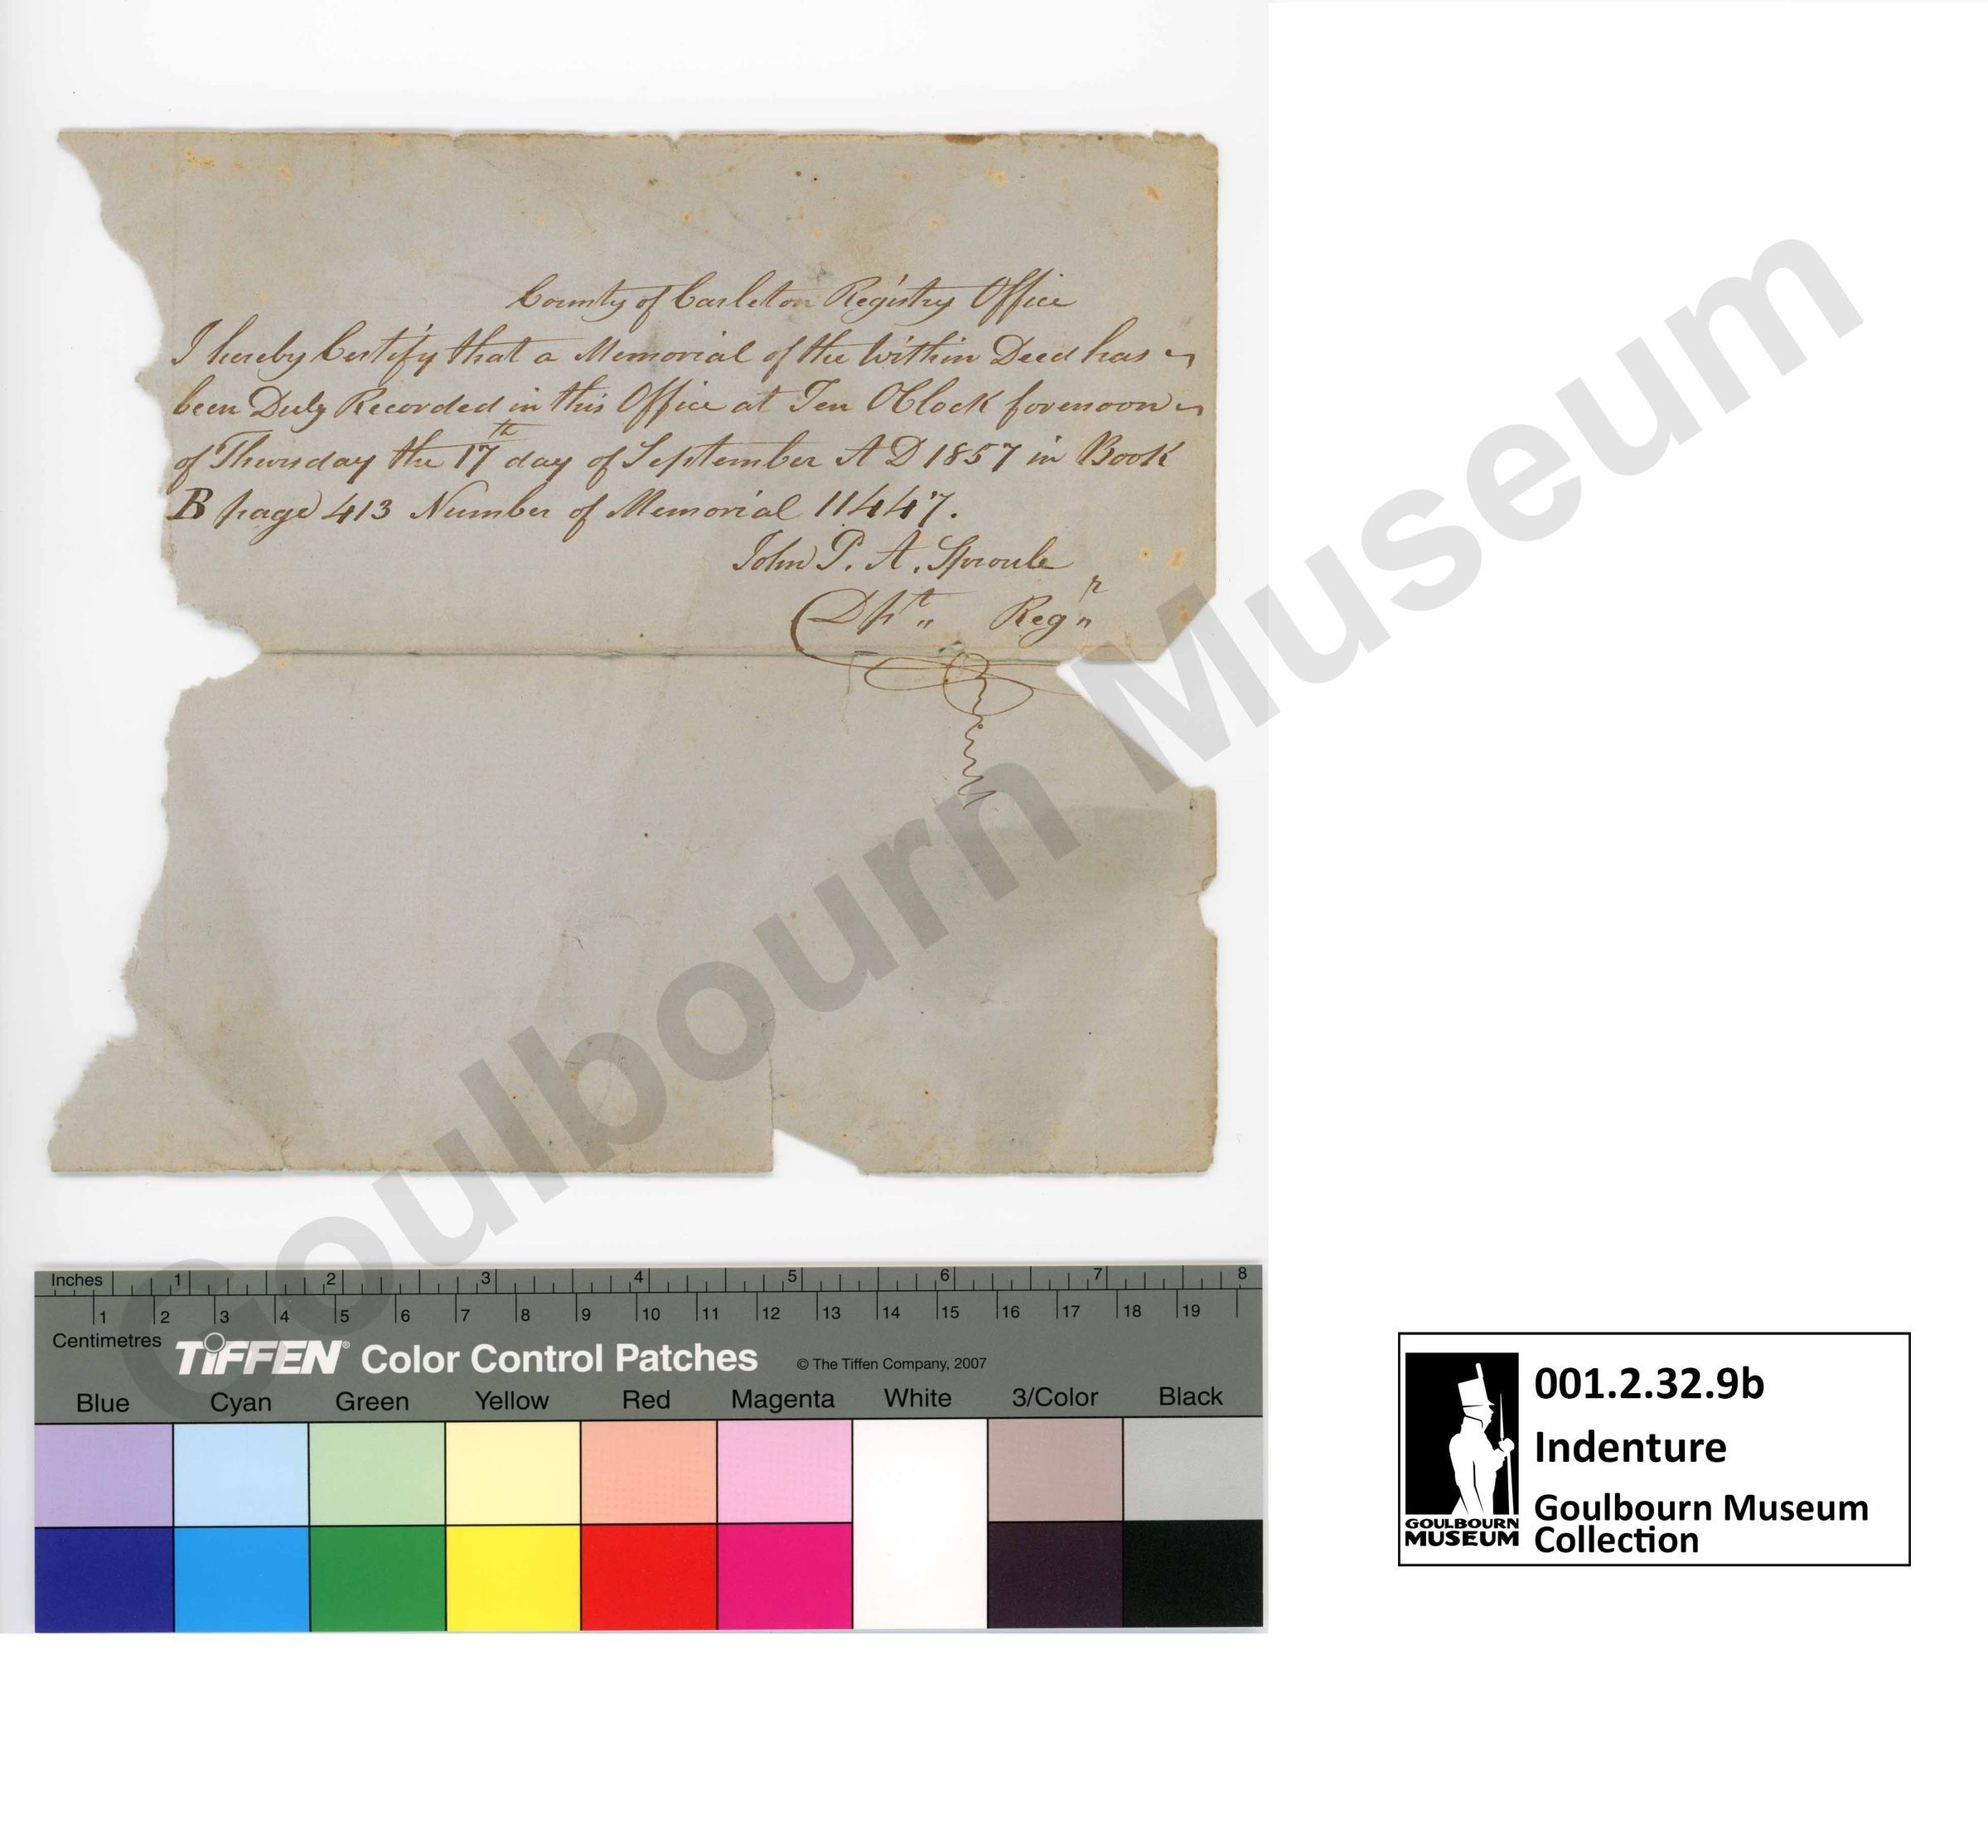 County of Carleton Registry Office
I hereby Certify that a Memorial of the Within Deed has
been Duly Recorded in this Office at Ten OClock forenoon
of Thursday the 17th day of September A D 1857 in Book
B page 413 Number of Memorial 11447.
John P. A. Sproule
Dpt " Regr "
Goulbourn Museum
Inches 1 2 3 4 5 6 7 8
1 2 3 4 5 6 7 8 9 10 11 12 13 14 15 16 17 18 19
Centimetres
TIFFEN® Color Control Patches © The Tiffen Company, 2007
Blue Cyan Green Yellow Red Magenta White 3/Color Black
001.2.32.9b
Indenture
Goulbourn Museum
Collection
GOULBOURN
MUSEUM